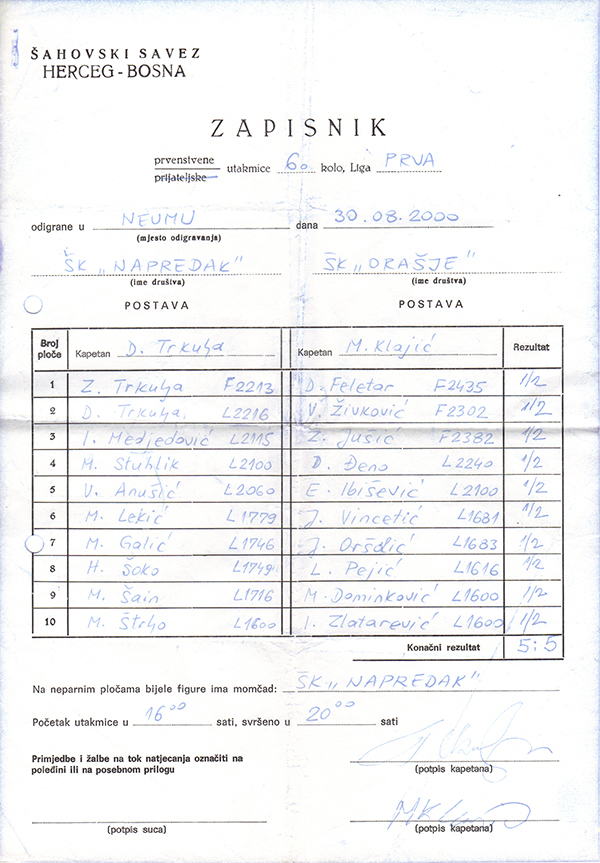 ŠAHOVSKI SAVEZ
HERCEG-BOSNA
ZAPISNIK
prvenstvene
prijateljske
utakmice 6. kolo, Liga PRVA
odigrane u NEUMU dana 30.08.2000
(mjesto odigravanja)
ŠK „NAPREDAK" ŠK „ORAŠJE"
(ime društva) (ime društva)
POSTAVA POSTAVA
Broj ploče Kapetan D. Trkulja Kapetan M. Klajić Rezultat
1 Z. Trkulja F2213 D. Feletar F2435 1/2
2 D. Trkulja L2216 V. Živković F2302 1/2
3 I. Medjedović L2115 Z. Jušić F2382 1/2
4 M. Stuhlik L2100 D. Đeno L2240 1/2
5 V. Anušić L2060 E. Ibišević L2100 1/2
6 M. Lekić L1779 J. Vincetić L1681 1/2
7 M. Galić L1746 J. Oršolić L1683 1/2
8 H. Šoko L1749 L. Pejić L1616 1/2
9 M. Šain L1716 M. Dominković L1600 1/2
10 M. Štrho L1600 I. Zlatarević L1600 1/2
Konačni rezultat 5:5
Na neparnim pločama bijele figure ima momčad: ŠK „NAPREDAK"
Početak utakmice u 16⁰⁰ sati, svršeno u 20⁰⁰ sati
Primjedbe i žalbe na tok natjecanja označiti na
poleđini ili na posebnom prilogu
(potpis kapetana)
(potpis suca) (potpis kapetana)